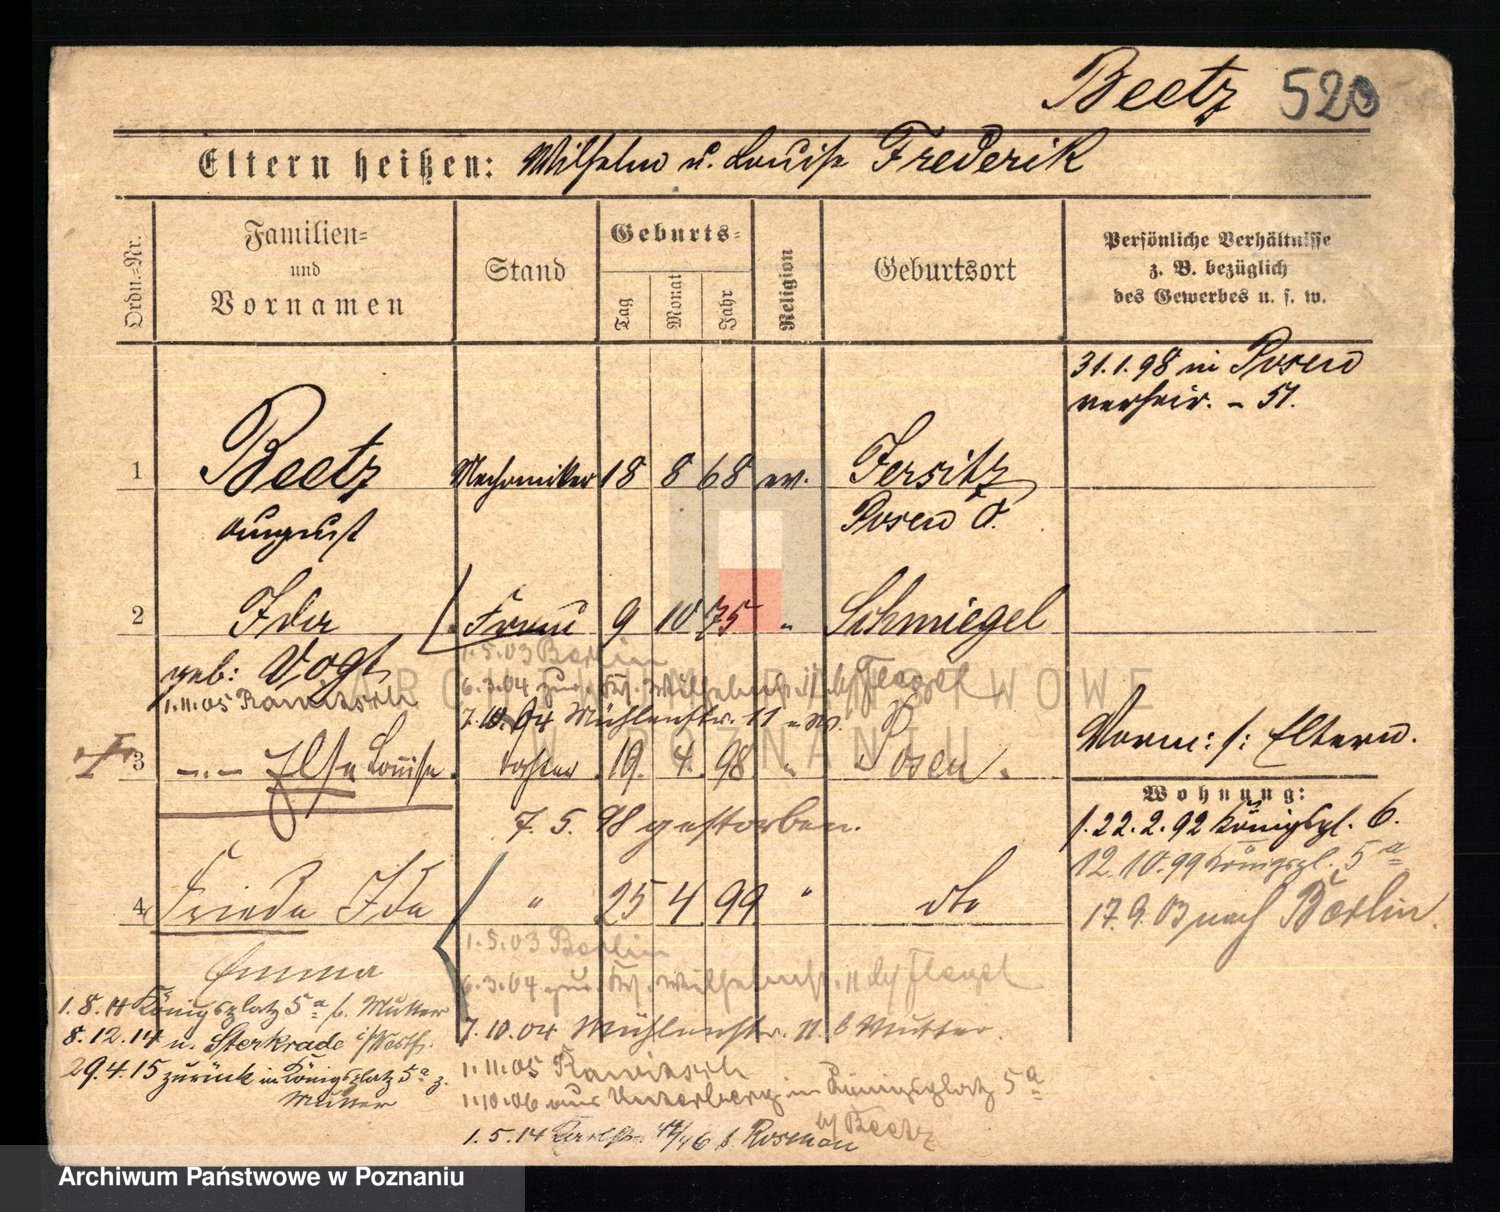 Beetz 520
Eltern heißen: Wilhelm u. Louise Frederik
Ordn.=Nr.
Familien=
und
Vornamen
Stand
Geburts=
Tag
Monat
Jahr
Religion
Geburtsort
Persönliche Verhältnisse
z. B. bezüglich
des Gewerbes u. s. w.
31.1.98 in Posen
verheir. - St.
1 Beetz Mechaniker 18 8 68 ev. Jersitz
August Posen O.
2 Ida Frau 9 10 75 " Schmiegel
geb: Vogt
1.5.03 Berlin
6.3.04 zur. Wilhelmstr. 11 b/ Flegel
1.11.05 Rawitsch
7.10.04 Mühlenstr. 11
3 -"- Else Louise. Tochter 19. 4. 98 " Posen.
7. 5. 98 gestorben.
Vorm: s: Eltern.
Wohnung:
1.22.2.92 Königspl. 6.
12.10.99 Königspl. 5a
17.9.03 nach Berlin.
4 Frieda Ida " 25 4 99 " dto
Emma
1.5.03 Berlin
6.3.04 zur. Wilhelmstr. 11 b/ Flegel
7.10.04 Mühlenstr. 11. b Mutter.
1.11.05 Rawitsch
1.10.06 aus Unterberg in Königsplatz 5a
b/ Beetz
1.5.14 b. Rosenau
1.8.14 Königsplatz 5a b. Mutter
8.12.14 n. Sterkrade i/Westf.
29.4.15 zurück in Königsplatz 5a z.
Mutter
ARCHIWUM PAŃSTWOWE
W POZNANIU
Archiwum Państwowe w Poznaniu